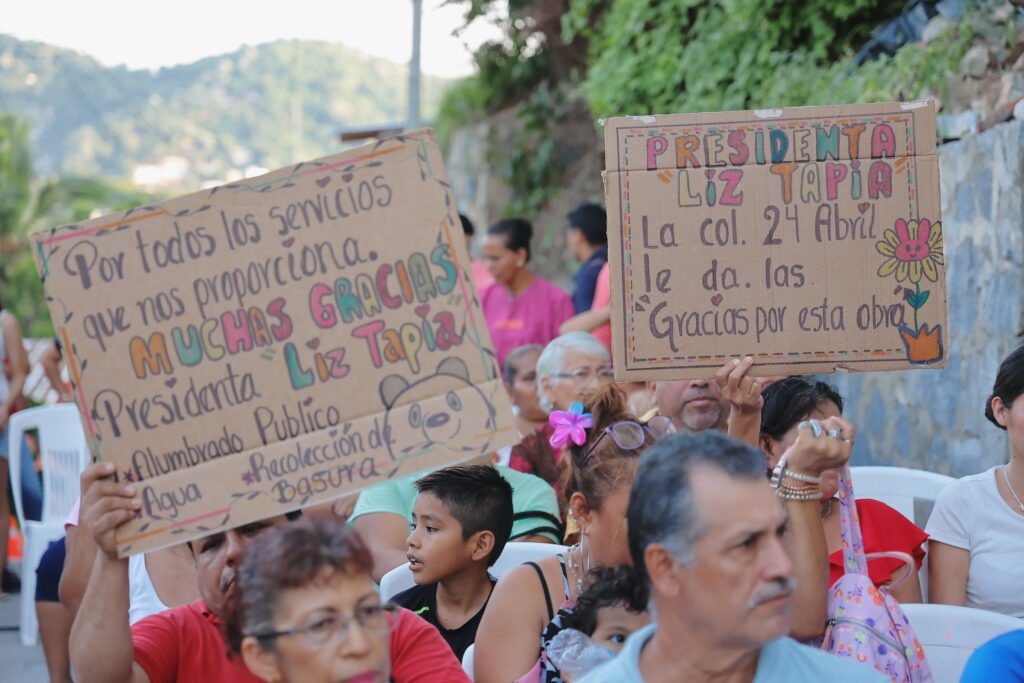 Por todos los servicios
que nos proporciona.
MUCHAS GRACIAS
Presidenta Liz Tapia
*Alumbrado Publico
*Agua *Recolección de
Basura
PRESIDENTA
LIZ TAPIA
La col. 24 Abril
le da. las.
"Gracias por esta obra"